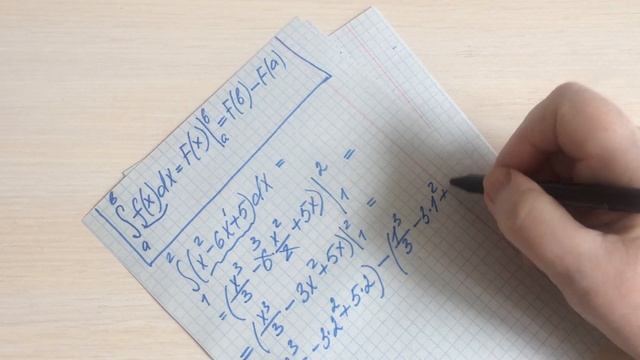 ∫ₐᵇ f(x)dx = F(x)|ₐᵇ = F(b) - F(a)
∫₁² (x² - 6x¹ + 5)dx =
= (x³/3 - 6³ x²/2 + 5x)|₁² =
= (x³/3 - 3x² + 5x)|₁² =
³ - 3·2² + 5·2) - (1³/3 - 3·1² +